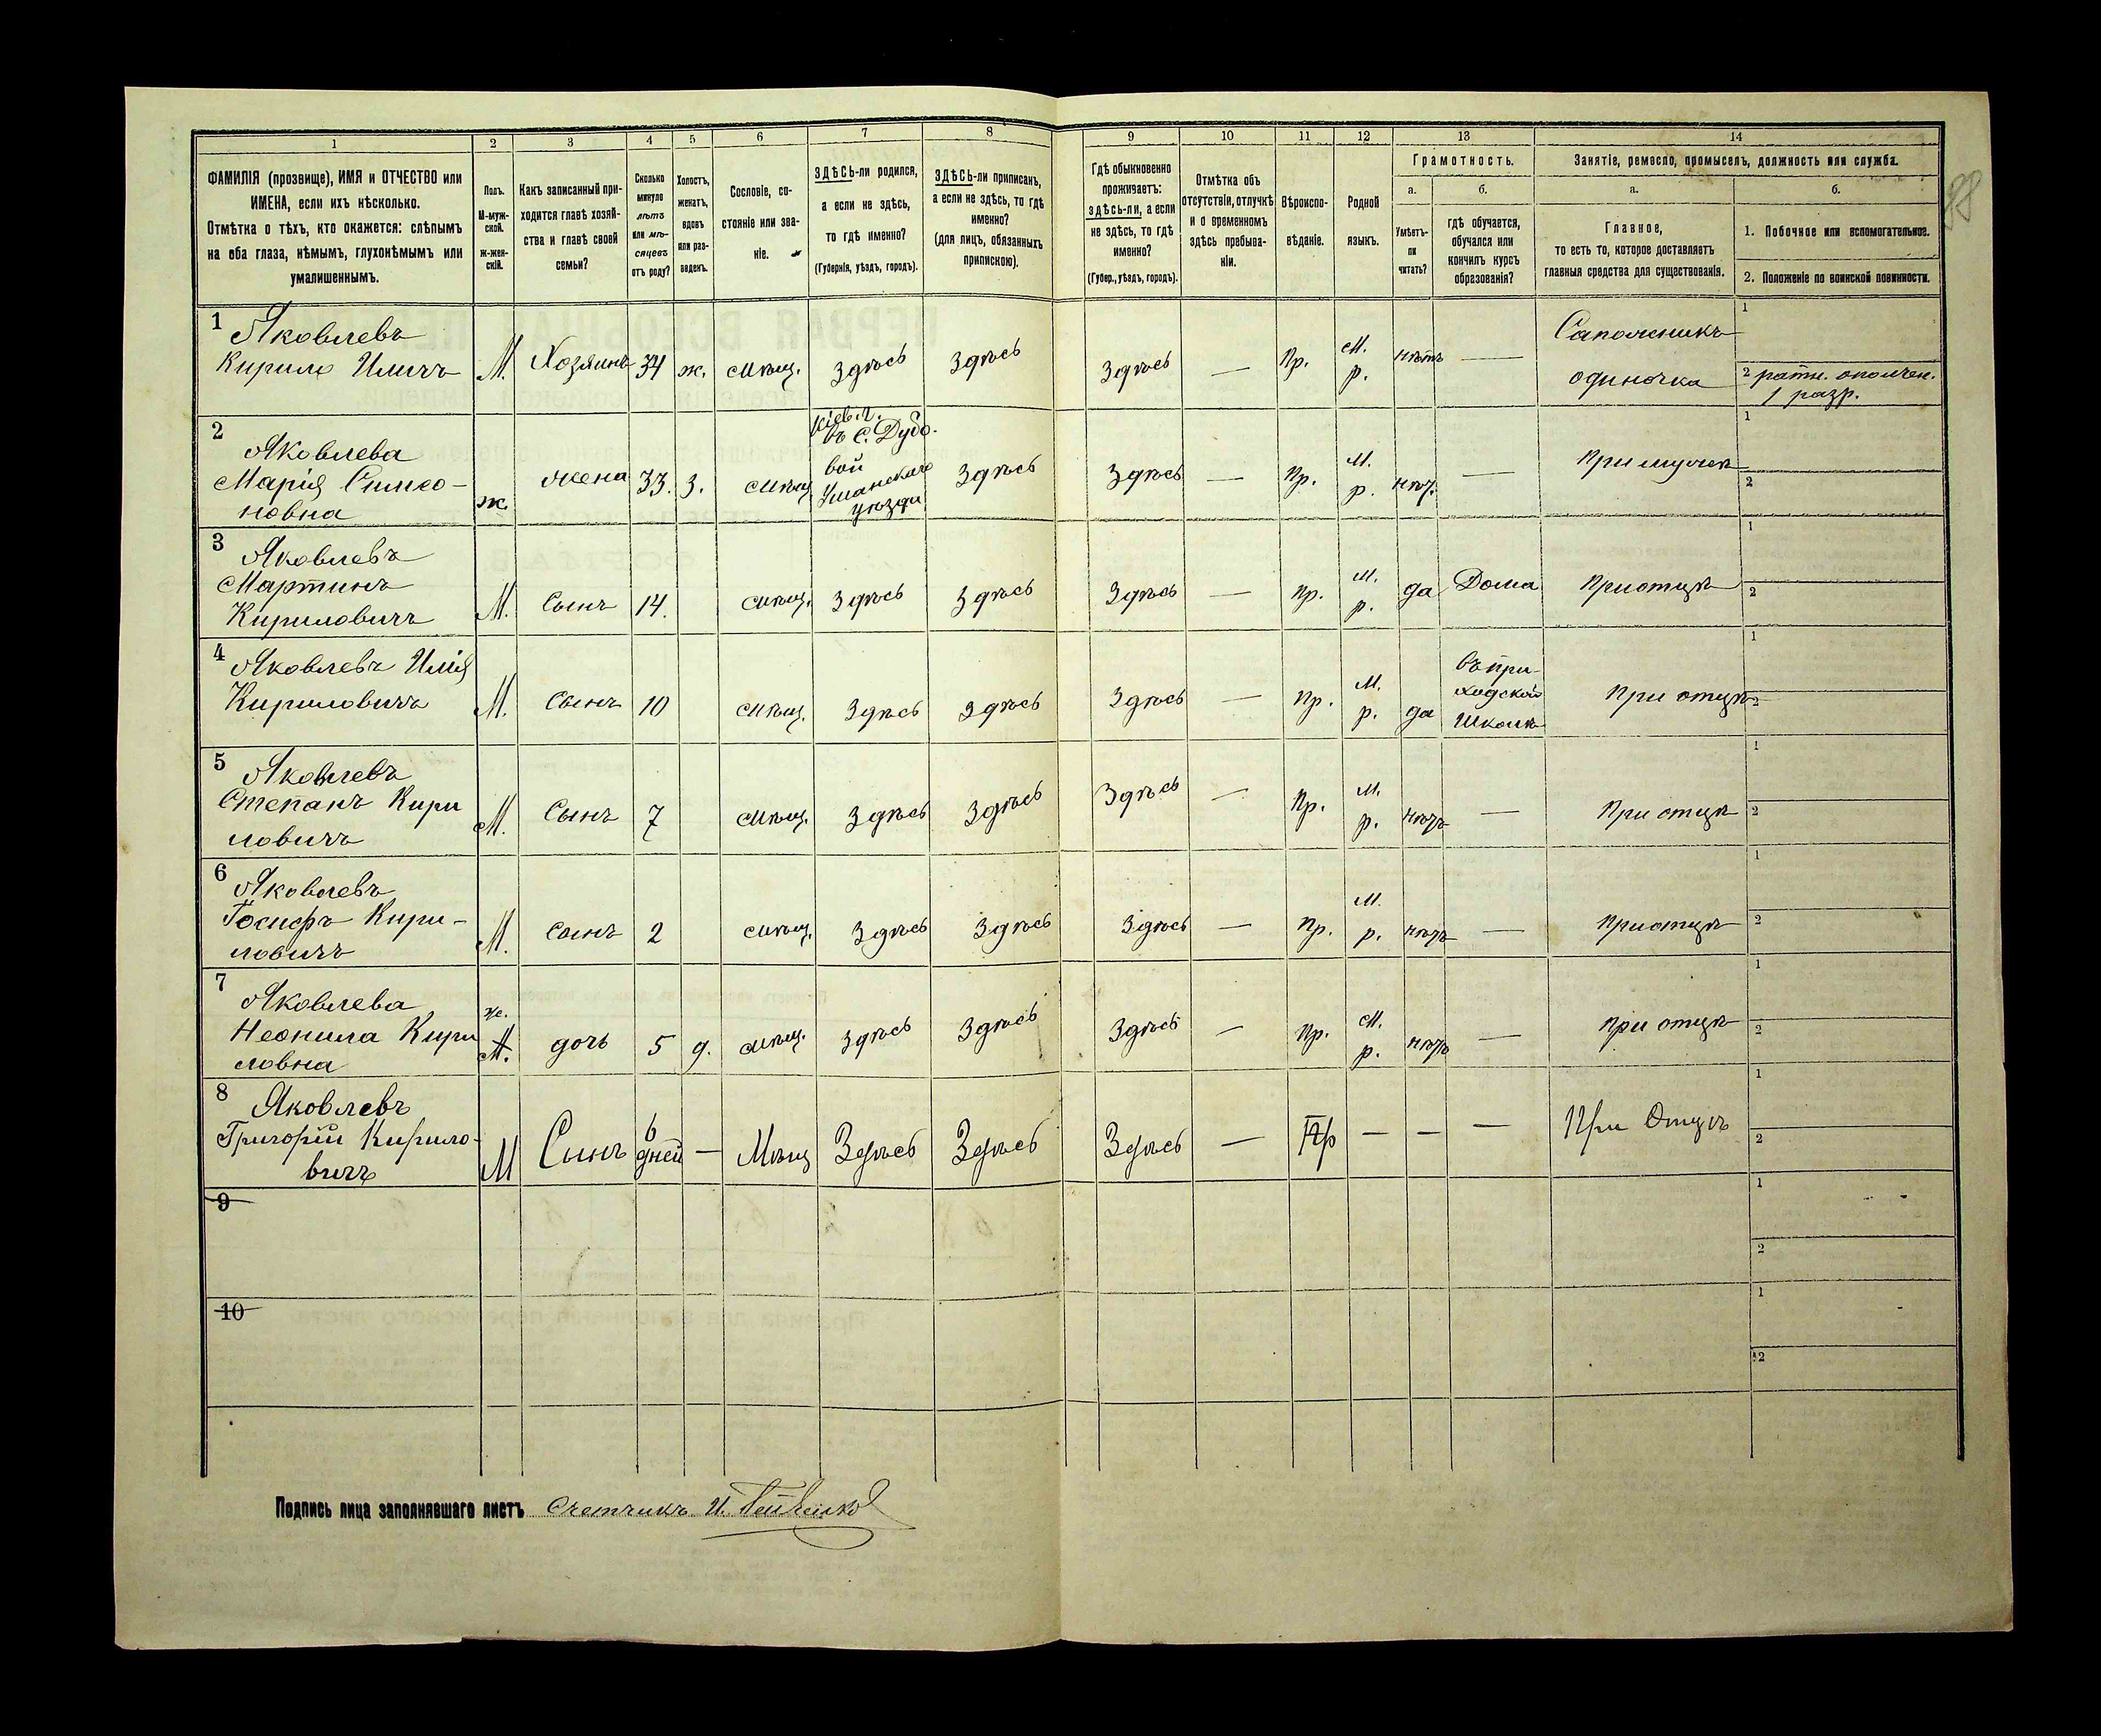 1 2 3 4 5 6 7 8 9 10 11 12 13 14
ФАМИЛІЯ (прозвище), ИМЯ и ОТЧЕСТВО или
ИМЕНА, если ихъ нѣсколько.
Отмѣтка о тѣхъ, кто окажется: слѣпымъ
на оба глаза, нѣмымъ, глухонѣмымъ или
умалишеннымъ.
Полъ.
М-муж-
ской.
Ж-жен-
скій.
Какъ записанный при-
ходится главѣ хозяй-
ства и главѣ своей
семьи?
Сколько
минуло
лѣтъ
или мѣ-
сяцевъ
отъ роду?
Холостъ,
женатъ,
вдовъ
или раз-
веденъ.
Сословіе, со-
стояніе или зва-
ніе.
ЗДѢСЬ-ли родился,
а если не здѣсь,
то гдѣ именно?
(Губернія, уѣздъ, городъ).
ЗДѢСЬ-ли приписанъ,
а если не здѣсь, то гдѣ
именно?
(для лицъ, обязанныхъ
припискою).
Гдѣ обыкновенно
проживаетъ:
здѣсь-ли, а если
не здѣсь, то гдѣ
именно?
(Губер., уѣздъ, городъ).
Отмѣтка объ
отсутствіи, отлучкѣ
и о временномъ
здѣсь пребыва-
ніи.
Вѣроиспо-
вѣданіе.
Родной
языкъ.
Грамотность.
а. б.
Умѣетъ-
ли
читать?
гдѣ обучается,
обучался или
кончилъ курсъ
образованія?
Занятіе, ремесло, промыселъ, должность или служба.
а. б.
Главное,
то есть то, которое доставляетъ
главныя средства для существованія.
1. Побочное или вспомогательное.
2. Положеніе по воинской повинности.
98
1 Яковлевъ
Кирило Иличъ
М. Хозяинъ 34 ж. мѣщ. здѣсь здѣсь здѣсь — Пр. М. р. нѣтъ —
Сапожникъ
одиночка
1
2 ратн. ополчен.
1 разр.
2 Яковлева
Марія Симео-
новна
ж. жена 33. з. мѣщ
Кіев. г.
въ С. Дубо-
вой
Уманскаго
уѣзда
здѣсь здѣсь — Пр. М. р. нѣт. — При мужѣ
1
2
3 Яковлевъ
Мартинъ
Кириловичъ
М. Сынъ 14. мѣщ. здѣсь здѣсь здѣсь — Пр. М. р. да Дома При отцѣ
1
2
4 Яковлевъ Илія
Кириловичъ
М. Сынъ 10 мѣщ. здѣсь здѣсь здѣсь — Пр. М. р. да
Въ при-
ходской
школѣ
При отцѣ
1
2
5 Яковлевъ
Степанъ Кири
ловичъ
М. Сынъ 7 мѣщ. здѣсь здѣсь здѣсь — Пр. М. р. нѣтъ — При отцѣ
1
2
6 Яковлевъ
Іосифъ Кири-
ловичъ
М. Сынъ 2 мѣщ. здѣсь здѣсь здѣсь — Пр. М. р. нѣтъ — При отцѣ
1
2
7 Яковлева
Неонила Кири
ловна
ж.
М. дочь 5 д. мѣщ. здѣсь здѣсь здѣсь — Пр. М. р. нѣтъ — При отцѣ
1
2
8 Яковлевъ
Григорій Кирило-
вичъ
М Сынъ 6 дней — Мѣщ Здѣсь Здѣсь Здѣсь — Пр — — — При Отцѣ
1
2
9
1
2
10
1
2
Подпись лица заполнявшаго листъ Счетчикъ И.